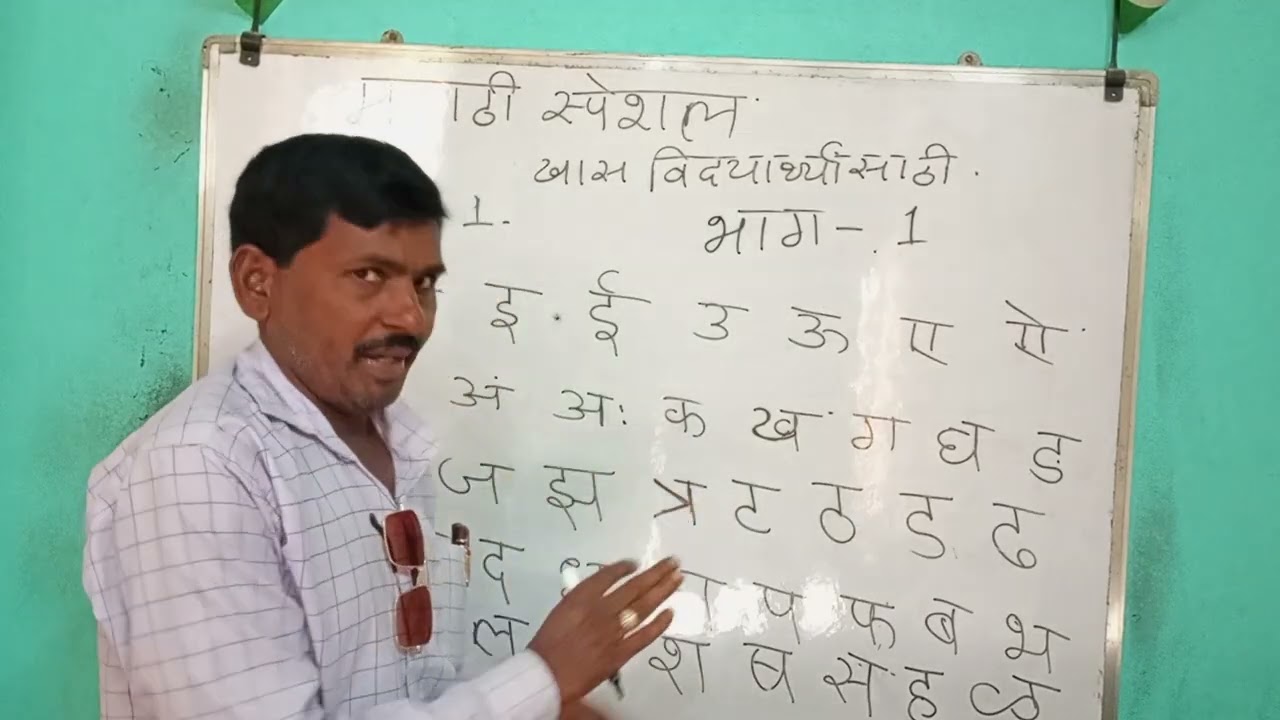 मराठी स्पेशल.
खास विदयार्थ्यांसाठी.
1.
भाग-.1
इ . ई उ ऊ ए ऐ
अं अः क ख ग घ ड
ज झ ञ ट ठ ड ढ
द प फ ब भ
ल श ब स ह ळ